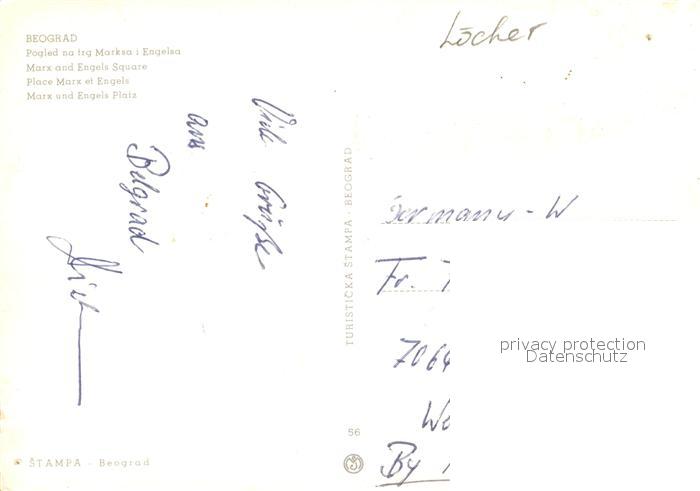 BEOGRAD
Pogled na trg Marksa i Engelsa
Marx and Engels Square
Place Marx et Engels
Marx und Engels Platz
Löcher
Viele Grüße
aus
Belgrad
TURISTIČKA ŠTAMPA - BEOGRAD
Germany - W
Fr.
7064
privacy protection
Datenschutz
We
By
56
ŠTAMPA - Beograd